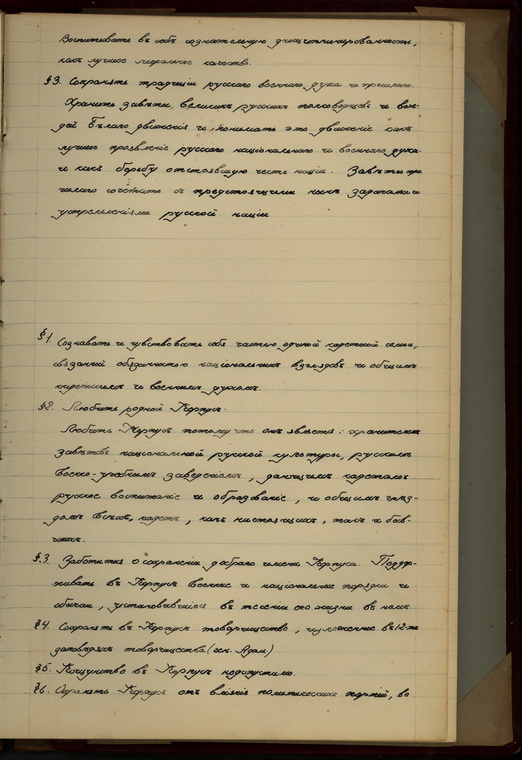 Воспитывать въ себѣ сознательную дисциплинированность,
какъ лучшее моральное качество.
§3. Сохранять традиціи русскаго военнаго духа и прошлаго.
Хранить завѣты великихъ русскихъ полководцевъ и вож-
дей Бѣлаго движенія и понимать это движеніе какъ
лучшее проявленіе русскаго національнаго и военнаго духа
и какъ борьбу отстоявшую честь націи. Завѣты про
шлаго сочетать съ предстоящими намъ задачами и
устремленіями русской націи
§1. Сознавать и чувствовать себя частью единой кадетской семьи,
связанной общностью національныхъ взглядовъ и общимъ
кадетскимъ и военнымъ духомъ.
§2. Любить родной Корпусъ.
Любить Корпусъ потому что онъ является: хранителемъ
завѣтовъ національной русской культуры, русскимъ
военно-учебнымъ заведеніемъ, дающимъ кадетамъ
русское воспитаніе и образованіе, и общимъ гнѣз-
домъ всѣхъ кадетъ, какъ настоящихъ, такъ и быв-
шихъ.
§.3. Заботиться о сохраненіи добраго имени Корпуса. Поддер-
живать въ Корпусѣ военные и національные порядки и
обычаи, установившіеся въ теченіи его жизни въ немъ.
§4. Сохранять въ Корпусѣ товарищество, изложенное въ 12-ти
заповѣдяхъ товарищества
§5. Кощунство въ Корпусѣ недопустимо.
§6. Охранять Корпусъ отъ вліянія политическихъ партій, во